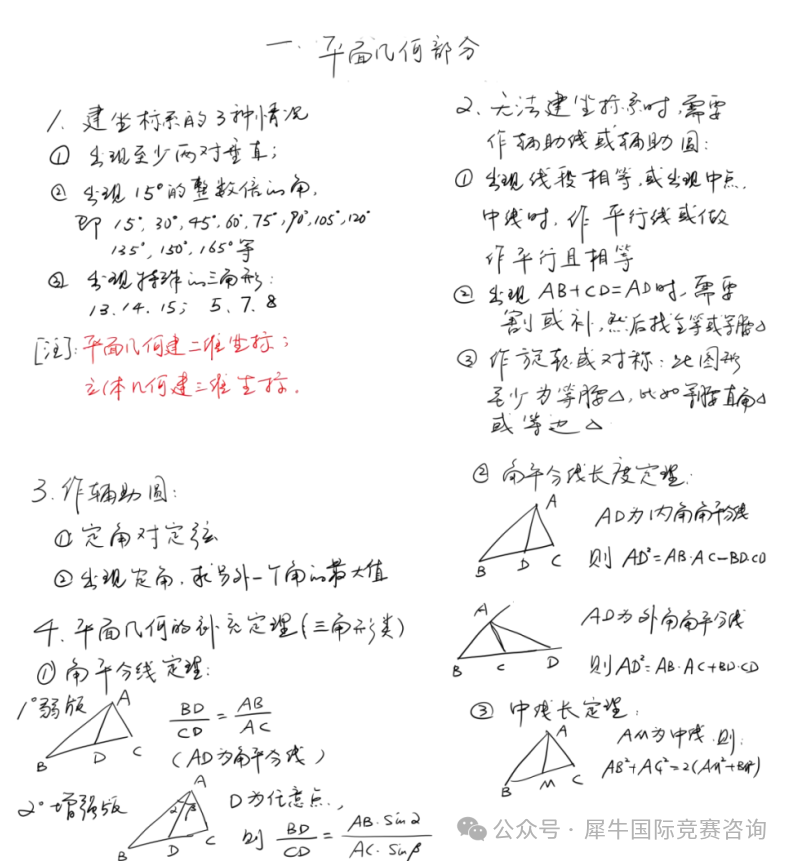 一. 平面几何部分
1. 建坐标系的3种情况
① 出现至少两对垂直;
② 出现15°的整数倍的角,
即 15°, 30°, 45°, 60°, 75°, 90°, 105°, 120°
135°, 150°, 165°等
③ 出现特殊的三角形:
13. 14. 15; 5. 7. 8
[注]: 平面几何建二维坐标;
立体几何建三维坐标.
2. 无法建坐标系时, 需要
作辅助线或辅助圆:
① 出现线段相等, 或出现中点.
中线时, 作 平行线或做
作平行且相等
② 出现 AB+CD=AD时, 需要
割或补, 然后找全等或等腰△
③ 作旋转或对称: 此图形
至少为等腰△, 比如等腰直角△
或等边△
3. 作辅助圆:
① 定角对定弦
② 出现定角, 求另外一个角的最大值
4. 平面几何的补充定理(三角形类)
① 角平分线定理:
1° 弱版
A
B
D
C
BD/CD = AB/AC
(AD为角平分线)
2° 增强版
A
α β
B
D
C
D为任意点,
则 BD/CD = AB·Sinα/AC·Sinβ
② 角平分线长度定理:
A
B
D
C
AD为内角角平分线
则 AD²=AB·AC-BD·CD
A
B
C
D
AD为外角角平分线
则AD²=AB·AC+BD·CD
③ 中线长定理:
A
B
M
C
AM为中线. 则:
AB²+AC²=2(AM²+BM²)
公众号·犀牛国际竞赛咨询